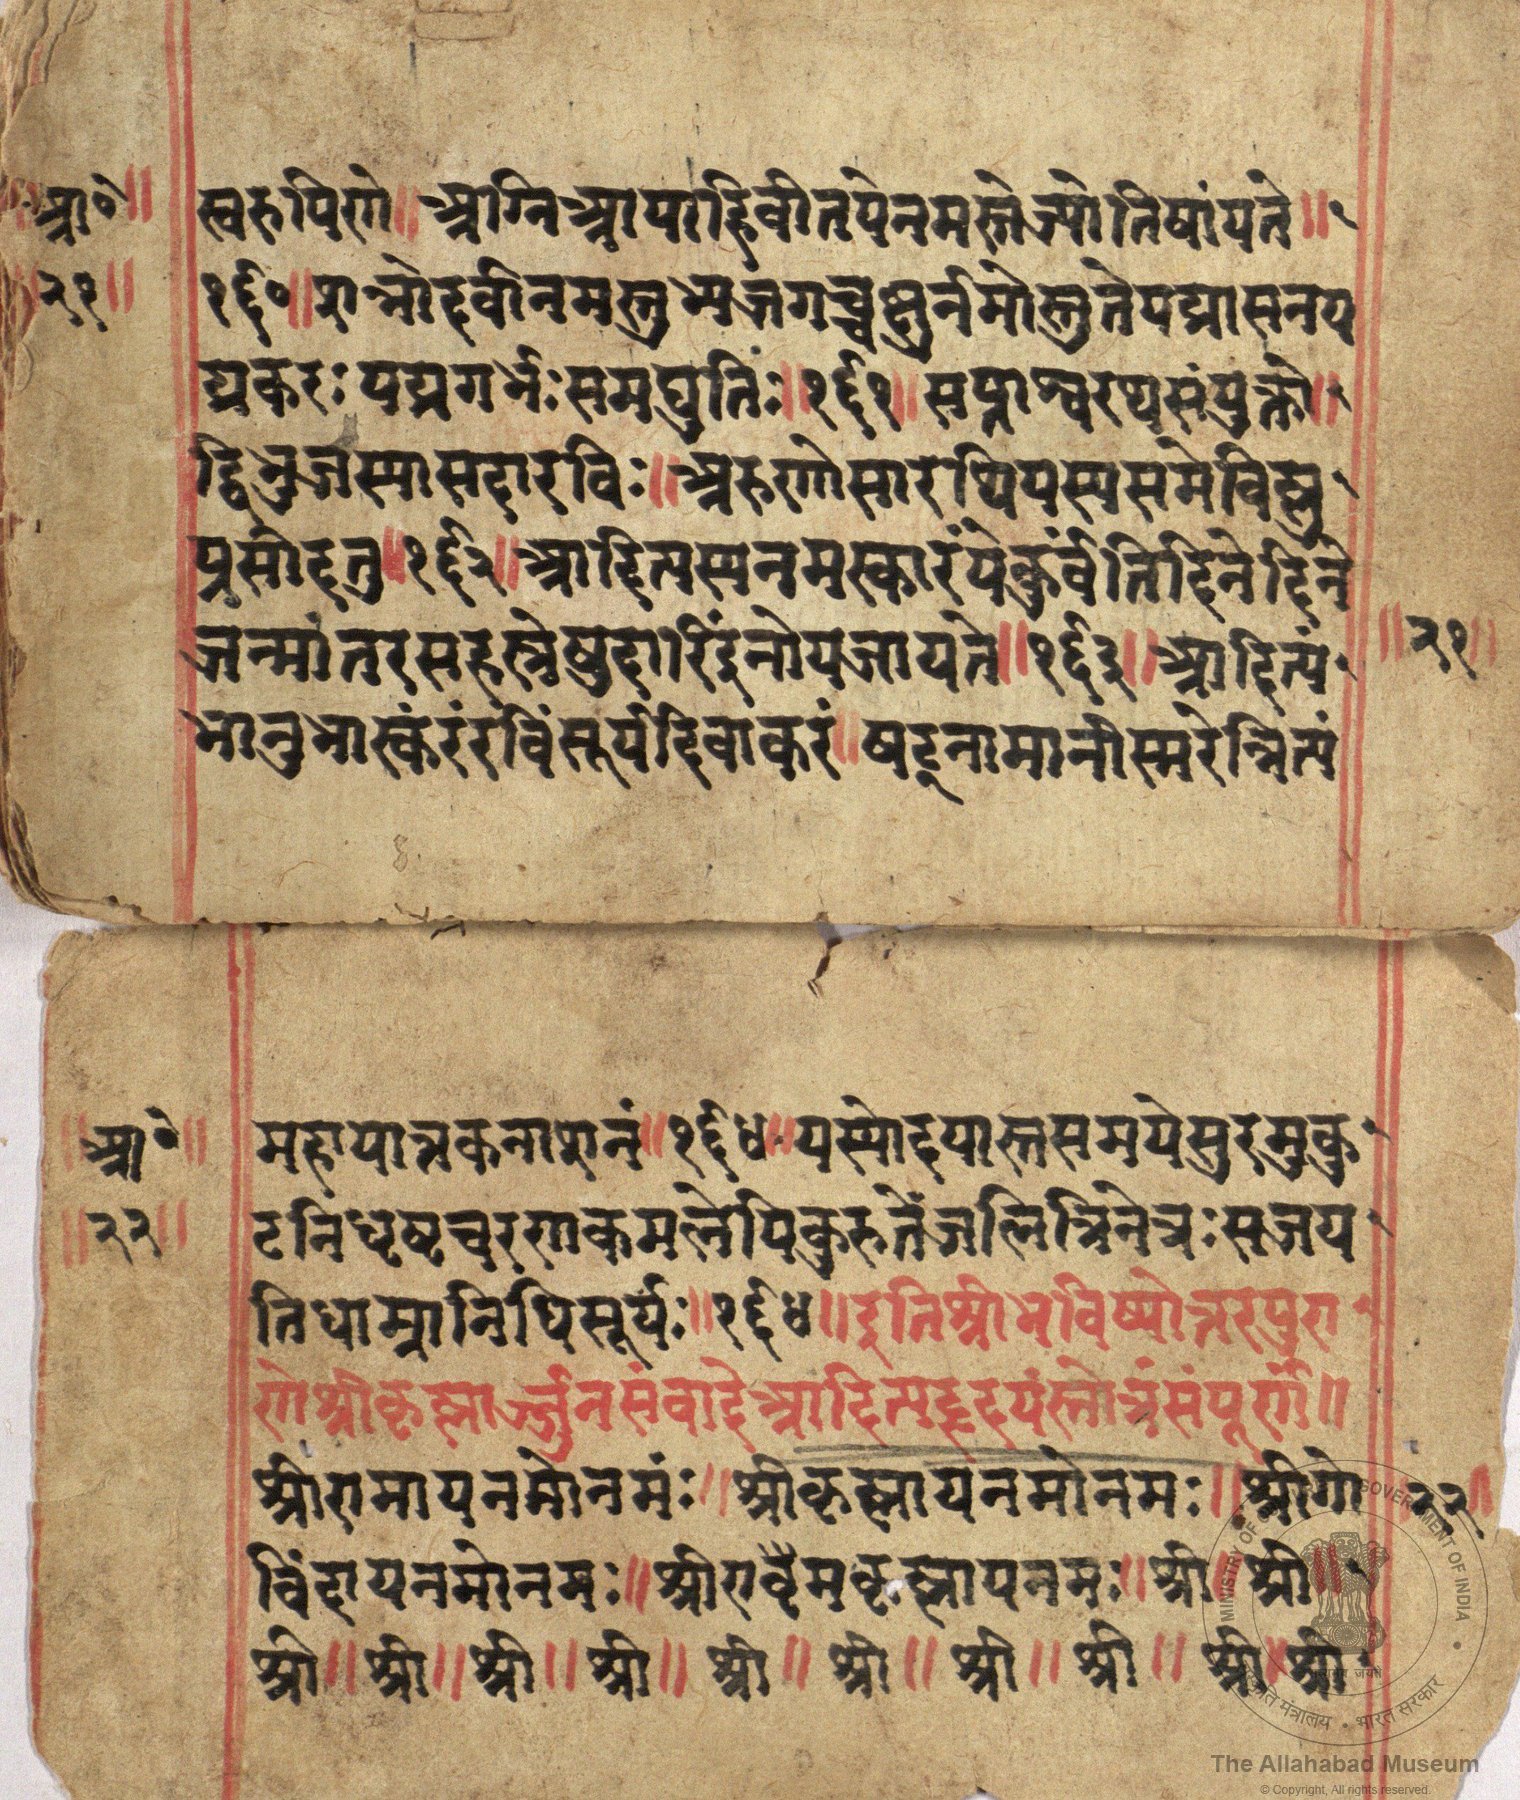 आ॰॥
॥२१॥
स्वरुपिणे॥ आग्निआयाहिवीतयेनमस्तेज्योतिषांपते॥
१६०॥शन्नोदेवीनमस्तुभ्यंजगच्चक्षुर्नमोस्तुतेपद्मासनप
द्मकरःपद्मगर्भःसमद्युतिः॥१६१॥सप्ताश्वरथसंयुक्तो॥
द्विभुजस्यासदारविः॥अरुणोसारथियस्यसमेविष्णु
प्रसीदतु॥१६२॥आदित्यस्यनमस्कारंयेकुर्वंतिदिनेदिने
जन्मांतरसहस्त्रेषुदारिद्रंनोपजायते॥१६३॥आदित्यं
भानुभास्करंरविंसूर्यंदिवाकरं॥षट्नामानीस्मरेन्नित्यं
॥२१॥
॥आ॰॥
॥२२॥
महापातकनाशनं॥१६४॥यस्योदयास्तसमयेसुरमुकु
टनिघृष्टचरणकमलोपिकुरुतेंजलित्रिनेत्रःसजय
तिधाम्नानिधिसूर्यः॥१६५॥इतिश्रीभविष्योत्तरपुरा
णेश्रीकृष्णार्ज्जुनसंवादेआदित्यहृदयंस्तोत्रंसंपूर्णं॥
श्रीरामायनमोनमः॥श्रीकृष्णायनमोनमः॥श्रीगो
विंदायनमोनमः॥श्रीकृष्णायनमः॥श्री॥श्री॥
श्री॥श्री॥श्री॥श्री॥श्री॥श्री॥श्री॥श्री॥श्री॥श्री
२२॥
MINISTRY OF CULTURE, GOVERNMENT OF INDIA
सत्यमेव जयते
संस्कृति मंत्रालय • भारत सरकार
The Allahabad Museum
© Copyright, All rights reserved.